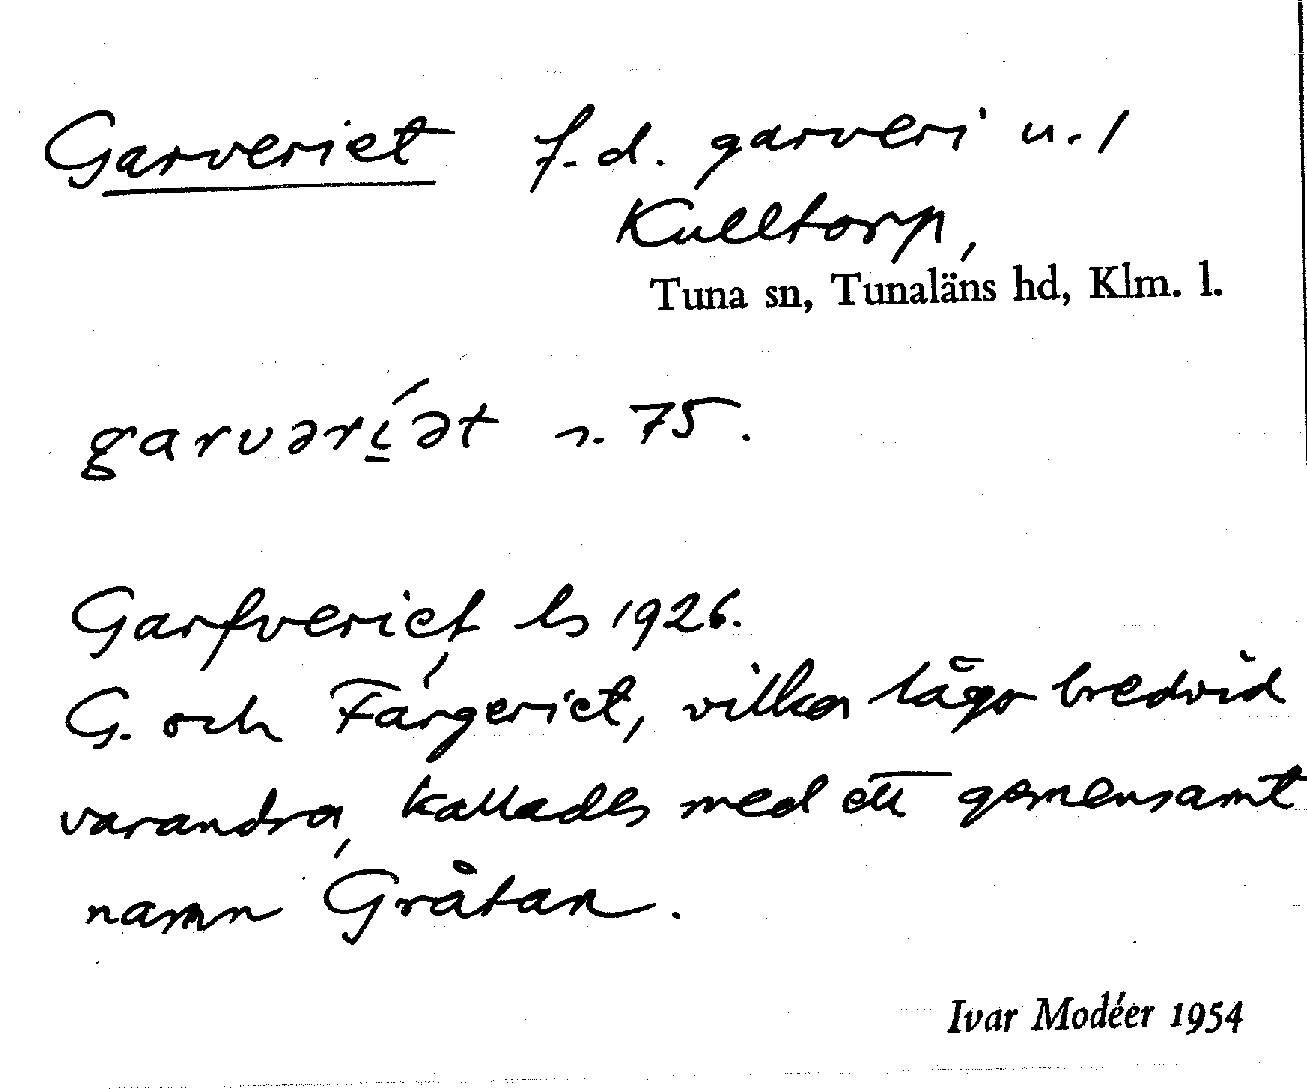 Garveriet f.d. garveri u. /
Kulltorp,
Tuna sn, Tunaläns hd, Klm. l.
garvərí̱ət n. 75.
Garfveriet ls 1926.
G. och Färgeriet, vilka lågo bredvid
varandra, kallades med ett gemensamt
namn Gråtan.
Ivar Modéer 1954